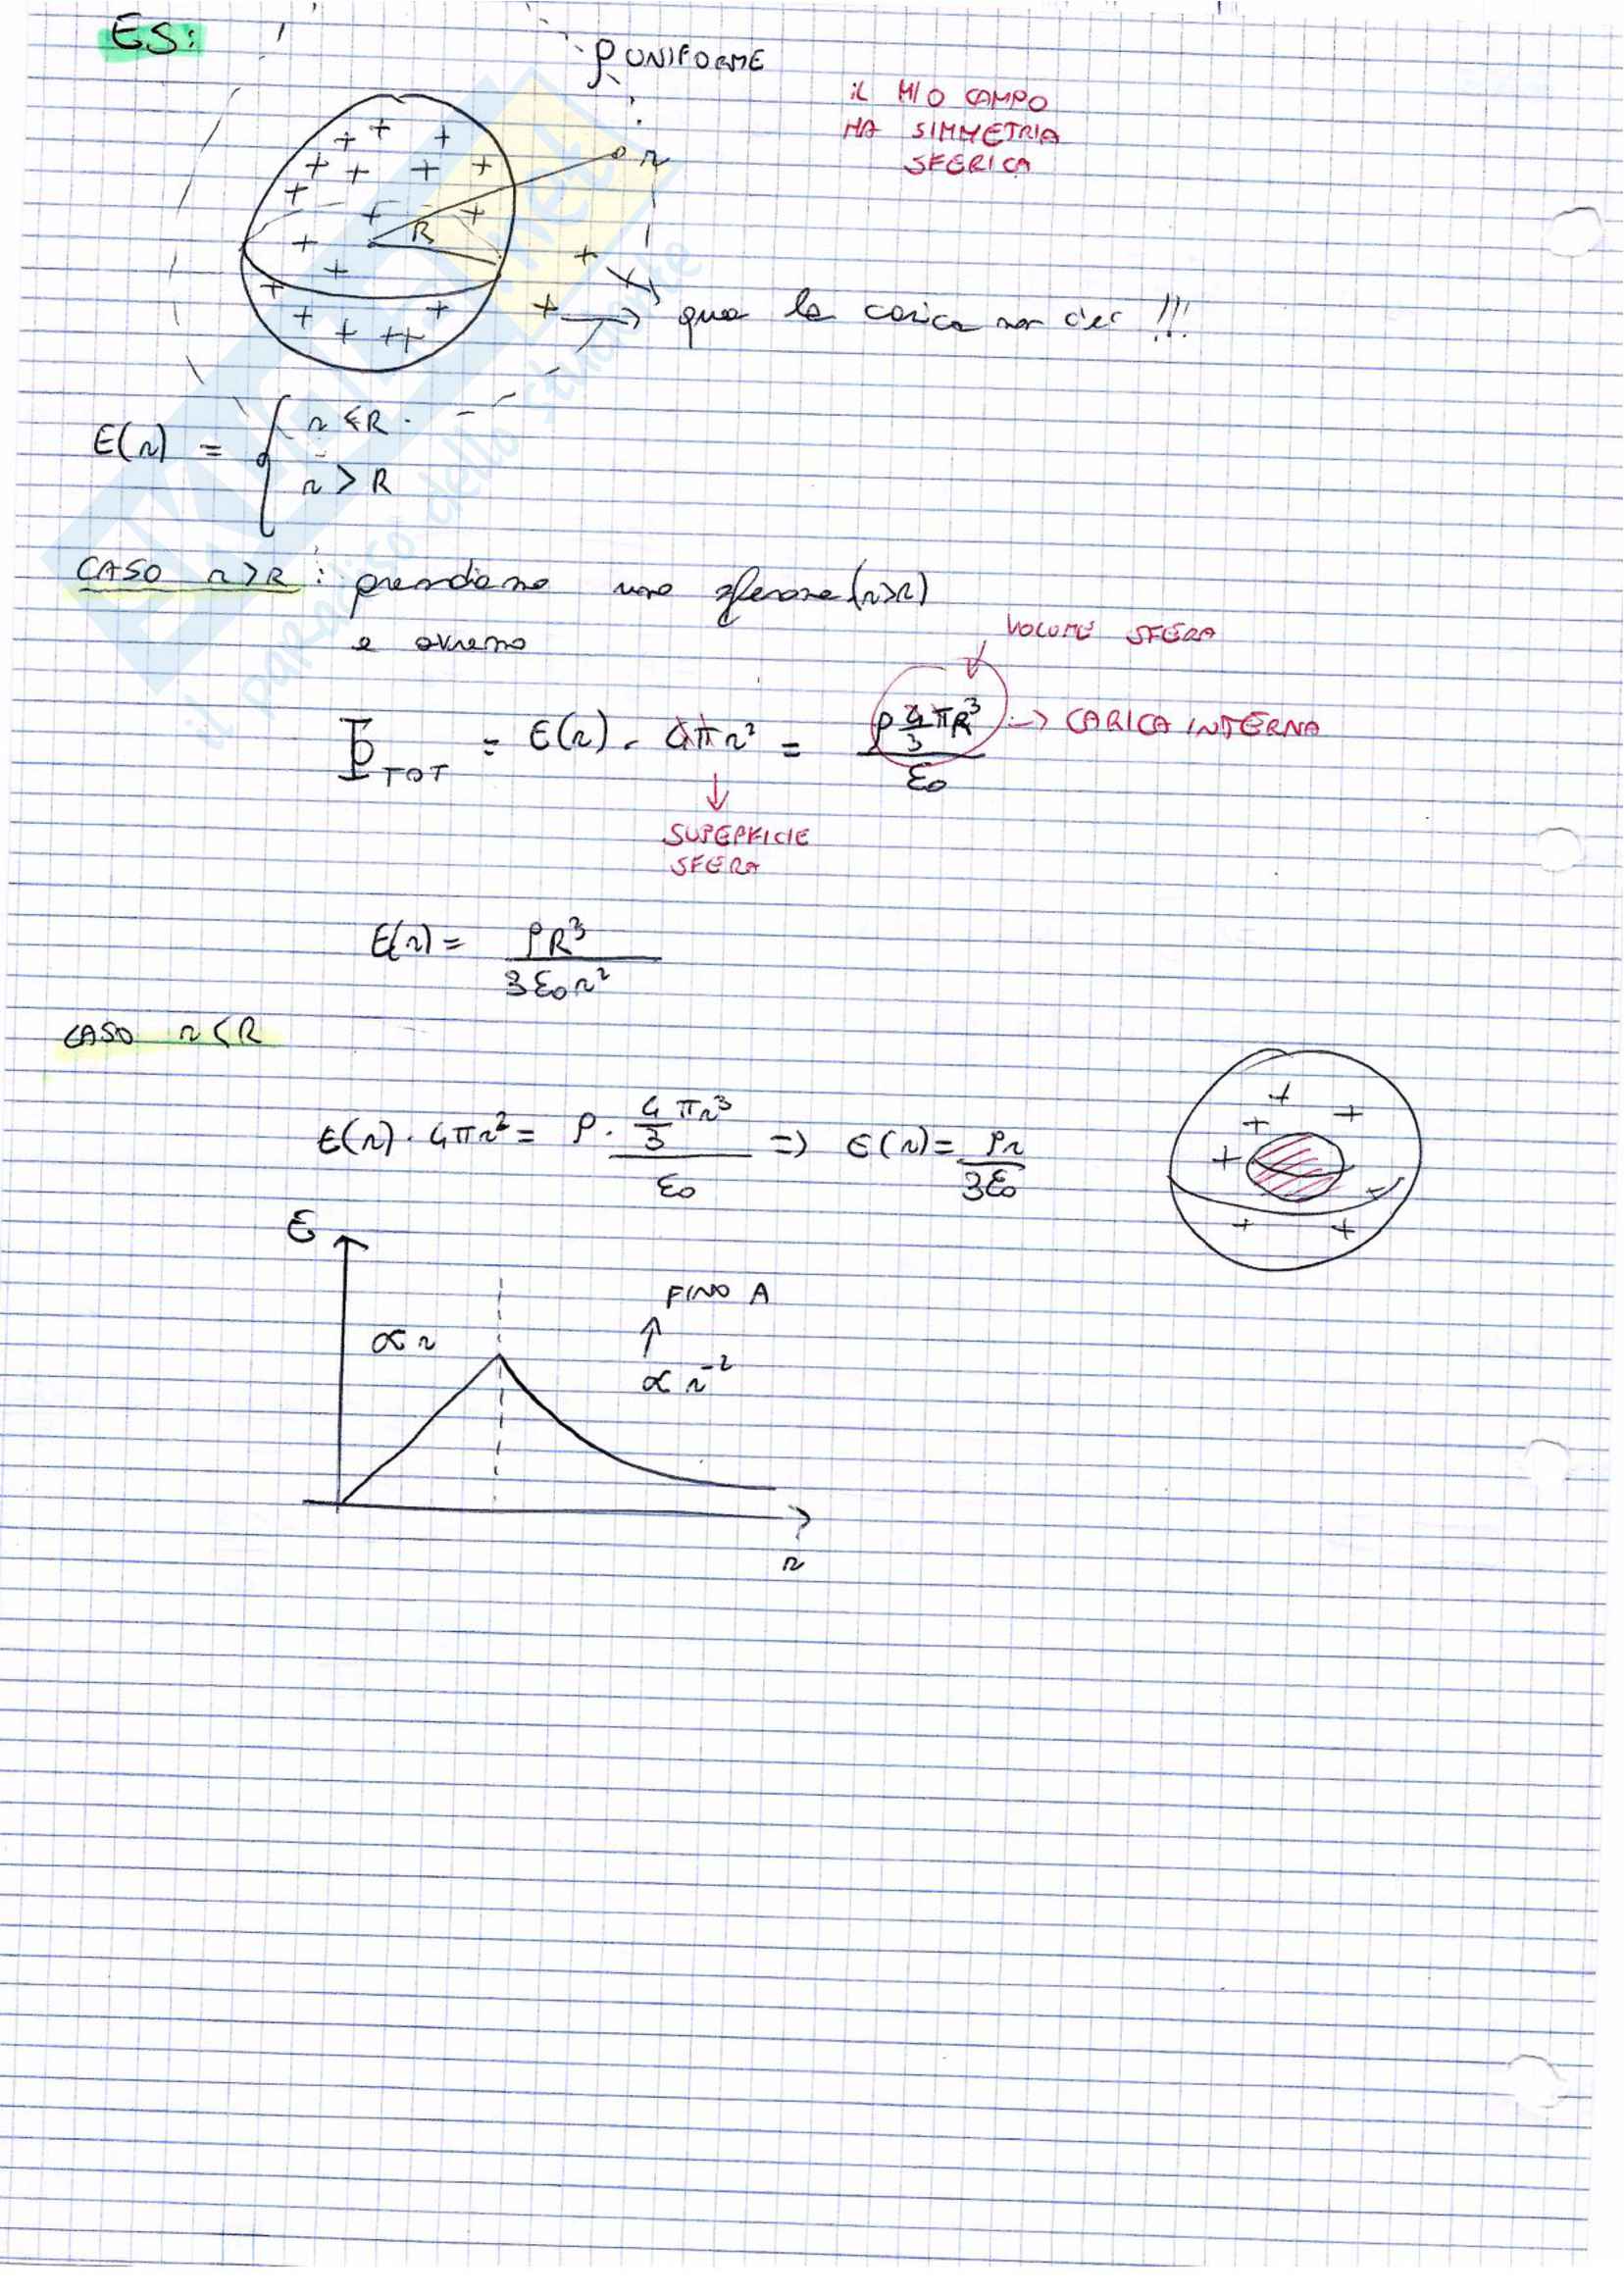 ES:
ρ UNIFORME
IL MIO CAMPO
HA SIMMETRIA
SFERICA
r
R
qua la carica non c'è !!!
E(r) = { r ≤ R
r > R
CASO r>R : prendiamo una sferona (r>R)
e avremo
VOLUME SFERA
Φ_TOT = E(r) · 4πr² = ρ 4/3 πR³ / ε₀ -> CARICA INTERNA
SUPERFICIE
SFERA
E(r) = ρR³ / 3ε₀r²
CASO r<R
E(r) · 4πr² = ρ · 4/3 πr³ / ε₀ => E(r) = ρr / 3ε₀
E
FINO A
∝ r
∝ r⁻²
r
il paradiso dello studente